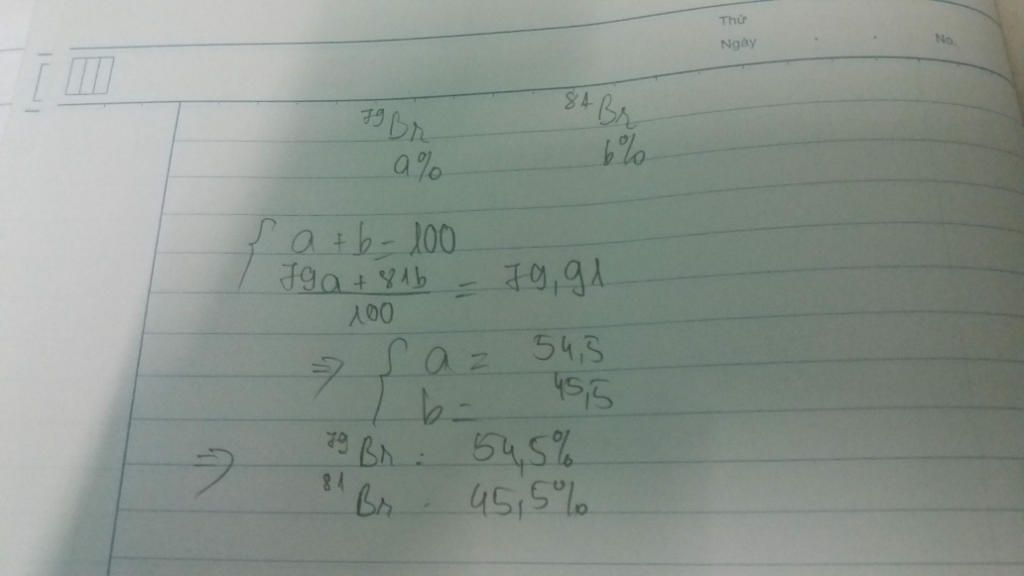 Thứ
Ngày No.
⁷⁹Br ⁸¹Br
a% b%
{ a + b = 100
79a + 81b / 100 = 79,91
⇒ { a = 54,5
b = 45,5
⇒ ⁷⁹Br : 54,5%
⁸¹Br : 45,5%